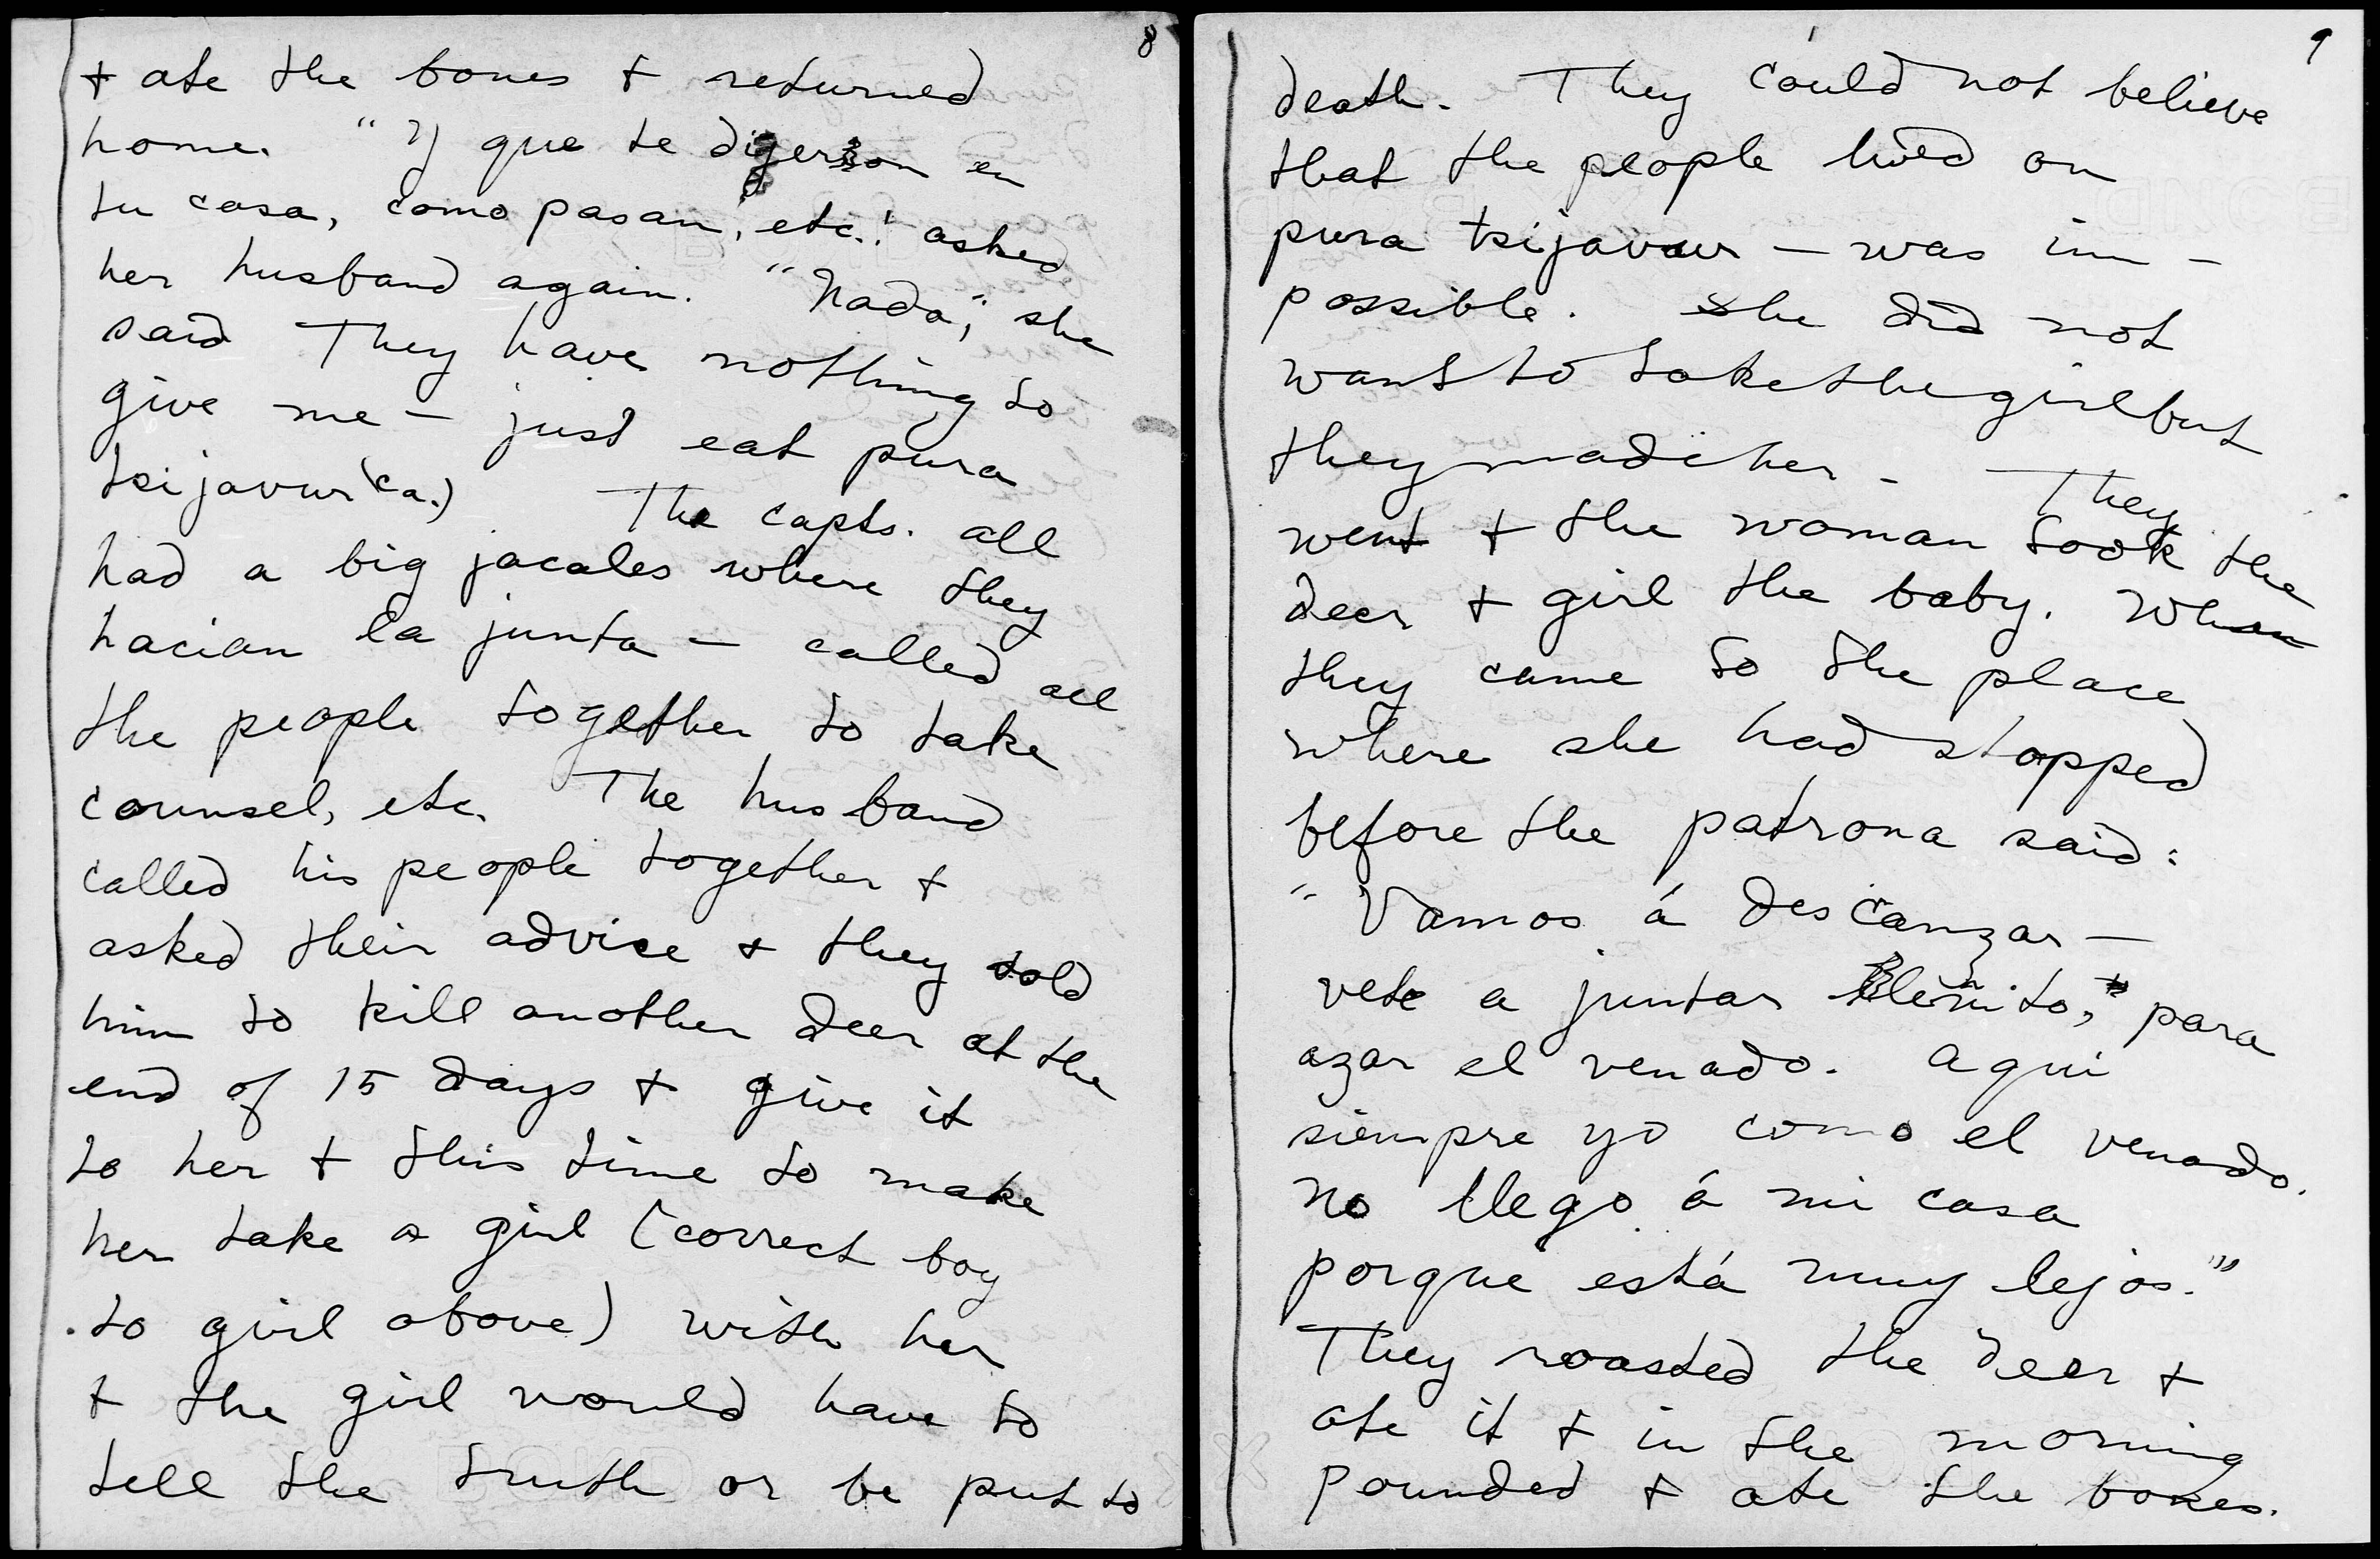 8
+ ate the bones + returned
home. "Y que te digeron en
tu casa, como pasan, etc." asked
her husband again. "Nada," she
said They have nothing to
give me – just eat pura
tsijavur (ca.) The capts. all
had a big jacales where they
hacian la junta – called all
the people together to take
counsel, etc. The husband
called his people together +
asked their advice + they told
him to kill another deer at the
end of 15 days + give it
to her + this time to make
her take a girl (correct boy
to girl above) with her
+ the girl would have to
tell the truth or be put to
9
death. They could not believe
that the people lived on
pura tsijavur – was im-
possible. She did not
want to take the girl but
they made her – They
went + the woman took the
deer + girl the baby. When
they came to the place
where she had stopped
before the patrona said:
"Vamos á descanzar –
vete a juntar leñito, para
azar el venado. Aqui
siempre yo como el venado.
No llego á mi casa
porque está muy lejos."
They roasted the deer +
ate it + in the morning
pounded + ate the bones.